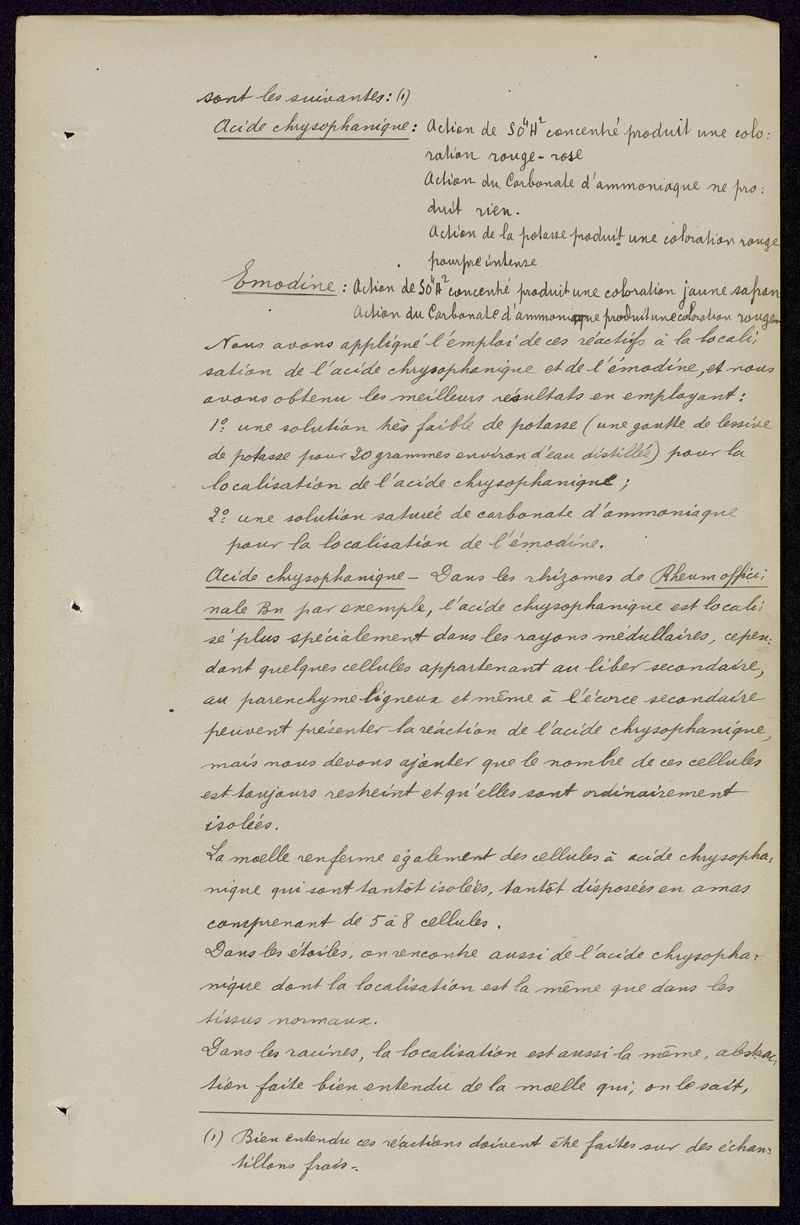 sont les suivantes: (1)
Acide chrysophanique: Action de SO⁴H² concentré produit une colo:
ration rouge-rose
Action du Carbonate d'ammoniaque ne pro:
duit rien.
Action de la potasse produit une coloration rouge
pourpre intense
Emodine: Action de SO⁴H² concentré produit une coloration jaune safran
Action du Carbonate d'ammoniaque produit une coloration rouge
Nous avons appliqué l'emploi de ces réactifs à la locali:
sation de l'acide chrysophanique et de l'émodine, et nous
avons obtenu les meilleurs résultats en employant:
1º une solution très faible de potasse (une goutte de lessive
de potasse pour 20 grammes environ d'eau distillée) pour la
localisation de l'acide chrysophanique;
2º une solution saturée de carbonate d'ammoniaque
pour la localisation de l'émodine.
Acide chrysophanique - Dans les rhizomes de Rheum offici:
nale Bn par exemple, l'acide chrysophanique est locali:
sé plus spécialement dans les rayons médullaires, cepen:
dant quelques cellules appartenant au liber secondaire,
au parenchyme ligneux et même à l'écorce secondaire
peuvent présenter la réaction de l'acide chrysophanique,
mais nous devons ajouter que le nombre de ces cellules
est toujours restreint et qu'elles sont ordinairement
isolées.
La moelle renferme également des cellules à acide chrysopha:
nique qui sont tantôt isolées, tantôt disposées en amas
comprenant de 5 à 8 cellules.
Dans les étoiles, on rencontre aussi de l'acide chrysopha:
nique dont la localisation est la même que dans les
tissus normaux.
Dans les racines, la localisation est aussi la même, abstrac:
tion faite bien entendu de la moelle qui, on le sait,
(1) Bien entendu ces réactions doivent être faites sur des échan:
tillons frais-.